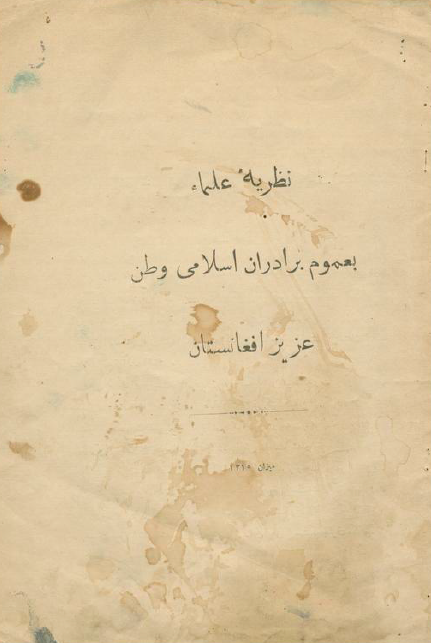 نظریهٔ علماء
بعموم برادران اسلامی وطن
عزیز افغانستان
میزان